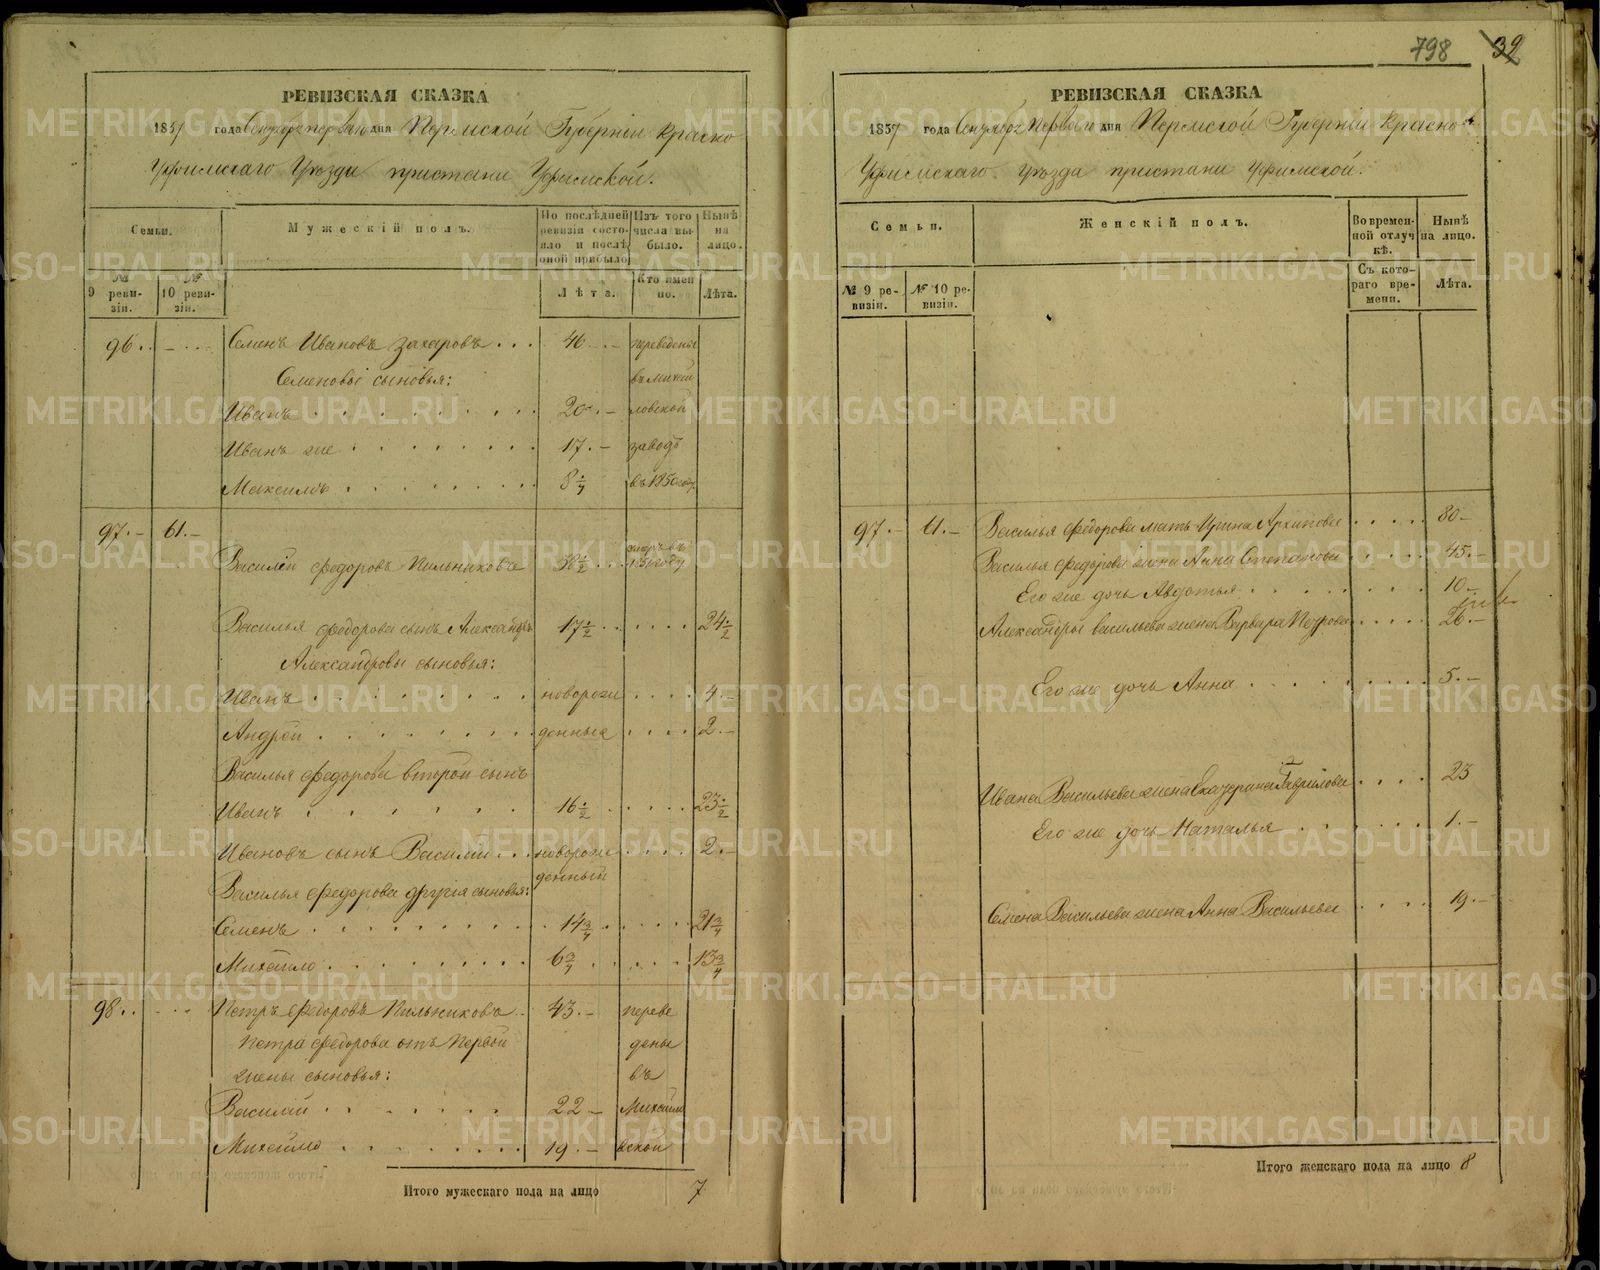 798 32
РЕВИЗСКАЯ СКАЗКА
1857 года Сентября первого дня Пермской Губерніи Красно
Уфимскаго Уѣзда пристани Уфимской.
Семьи.
Мужескій полъ.
По послѣдней ревизіи состояло и послѣ оной прибыло
Изъ того числа выбыло.
Нынѣ на лицо.
№ 9 ревизіи.
№ 10 ревизіи.
Лѣта.
Кто именно.
Лѣта.
96. Семенъ Ивановъ Захаровъ . . . 46 . – переведены
Семеновы сыновья: въ Михай
Иванъ . . . 20 . – ловской
Иванъ же . . . 17 . – заводъ
Максимъ . . . 8 1/4 въ 1850 году
97. – 61. –
Василій Федоровъ Пильниковъ 38 1/2 . . . умръ въ 1851 году
Василья Федорова сынъ Александръ 17 1/2 . . . 24 1/2
Александровы сыновья:
Иванъ . . . новорож . . . 4. –
Андрей . . . денные . . . 2. –
Василья Федорова второй сынъ
Иванъ . . . 16 1/2 . . . 23 1/2
Ивановъ сынъ Василій . . . новорож . . . 2. –
денный
Василья Федорова другія сыновья:
Семенъ . . . 14 3/4 . . . 21 3/4
Михайло . . . 6 3/4 . . . 13 3/4
98. . . . Петръ Федоровъ Пильниковъ . . 43. – переве
Петра Федорова отъ первой дены
жены сыновья: въ
Василій . . . 22 – Михайло
Михайло . . . 19. – вской
Итого мужескаго пола на лицо 7
РЕВИЗСКАЯ СКАЗКА
1857 года Сентября Перваго дня Пермской Губерніи Красно
Уфимскаго уѣзда пристани Уфимской.
Семьи.
Женскій полъ.
Во временной отлучкѣ.
Нынѣ на лицо.
№ 9 ревизіи.
№ 10 ревизіи.
Съ котораго времени.
Лѣта.
97. – 61. – Василья Федорова мать Ирина Архипова . . . 80 –
Василья Федорова жена Анна Степанова . . . 45. –
Его же дочь Авдотья . . . 10 –
Александры Васильева жена Варвара Петрова . . . 26. –
Его же дочь Анна . . . 5. –
Ивана Васильева жена Екатерина Гаврилова . . . 23
Его же дочь Наталья . . . 1. –
Семена Васильева жена Анна Васильева . . . 19. –
Итого женскаго пола на лицо 8
METRIKI.GASO-URAL.RU